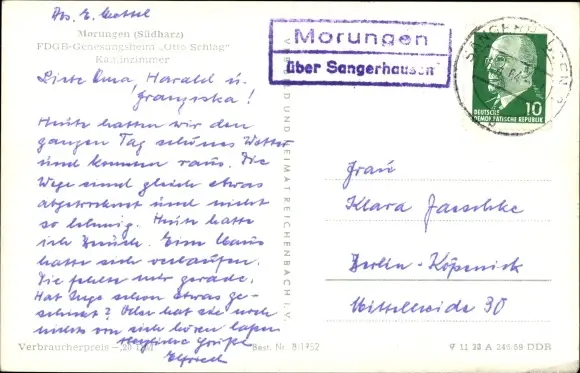 Abs. E.
Morungen (Südharz)
FDGB-Genesungsheim „Otto Schlag"
Kaminzimmer
Liebe Oma, Harald u.
Franziska!
Heute hatten wir den
ganzen Tag schönes Wetter
und kommen raus. Die
Wege sind gleich etwas
abgetrocknet und nicht
so lehmig. Heute hatte
ich Besuch. Eine Maus
hatte sich verlaufen.
Die fehlte mir gerade.
Hat Inge schon etwas ge-
schickt? Oder hat sie noch
nichts von sich hören lassen
Herzliche Grüße
Elfried
Verbraucherpreis –,20 DM
Best. Nr. B 1952
V 11 28 A 246/59 DDR
VERLAG BILD UND HEIMAT REICHENBACH I. V.
Morungen
über Sangerhausen
SANGERHAUSEN
10
DEUTSCHE
DEMOKRATISCHE REPUBLIK
Frau
Klara Jaeschke
Berlin-Köpenick
Mittelheide 30